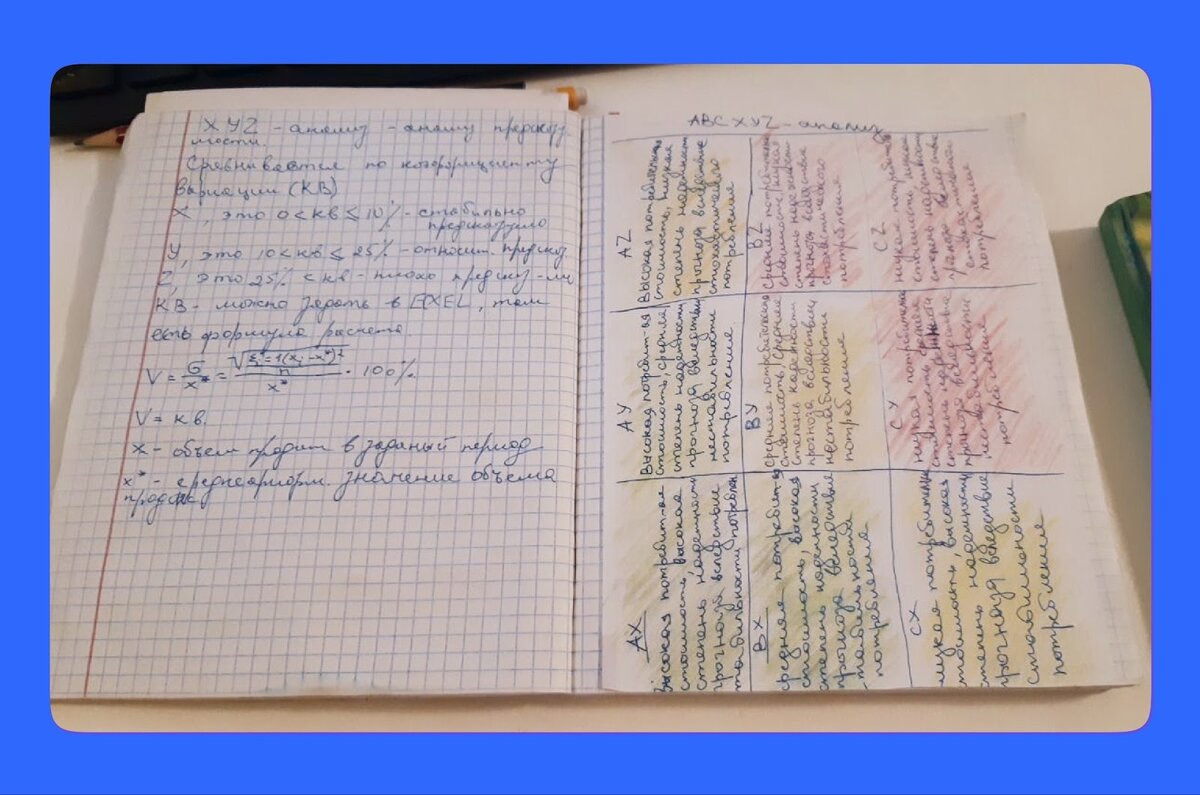 XYZ - анализ - анализ предсказу.
мости.
Сравнивается по коэффициенту
Вариации (КВ)
X, это 0 < КВ ≤ 10% - стабильно
предсказуемо
У, это 10 < КВ ≤ 25% - относит. предсказ
Z, это 25% < КВ - плохо предсказ-мы
КВ - можно задать в EXEL, там
есть формула расчета.
V = σ/x* = √(Σⁿi=1(xi-x*)²/n)/x* · 100%.
V = КВ.
x - объем продаж в заданый период
x* - среднеарифм. значение объема
продаж
ABC XYZ - анализ
AX
Высокая потребит-ая
стоимость, высокая
степень надежности
прогноза вследствие
стабильности потреблен
AY
Высокая потребит-ая
стоимость, средняя
степень надежности
прогноза вследствии
нестабильности
потребление
AZ
Высокая потребительна
стоимость, низкая
степень надежности
прогноза вследствие
стохастического
потребления
BX
Средняя потребит-я
стоимость, высокая
степень надежности
прогноза вследствие
стабильности
потребления
BY
Средняя потребительна
стоимость, средняя
степень надежности
прогноза вследствии
нестабильности
потребление
BZ
Средняя потребительна
стоимость, низкая
степень надежности
прогноза вследствие
стохастического
потребления
CX
Низкая потребительна
стоимость, высокая
степень надежности
прогноза вследствие
стабильности
потребление
CY
Низкая потребительна
стоимость, средняя
степень надежности
прогноза вследствие
нестабильности
потребления
CZ
Низкая потребительна
стоимость, низкая
степень надежности
прогноза вследствие
стохастического
потребления